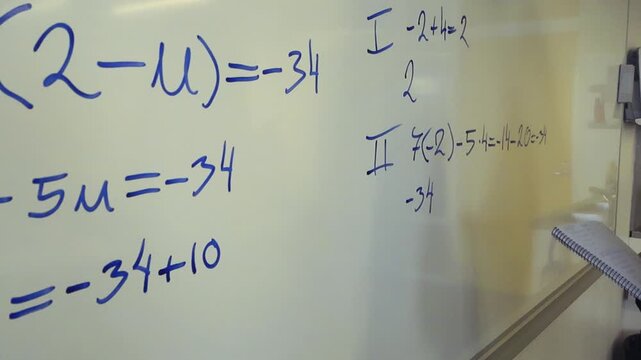 (2-u)=-34
-5u=-34
=-34+10
I -2+4=2
2
II 7(-2)-5·4=-14-20=-34
-34